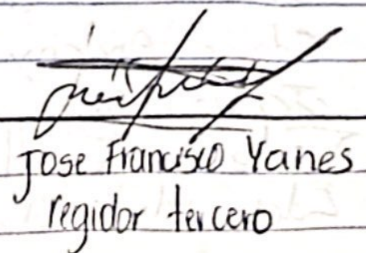 Jose Francisco Yanes
regidor tercero